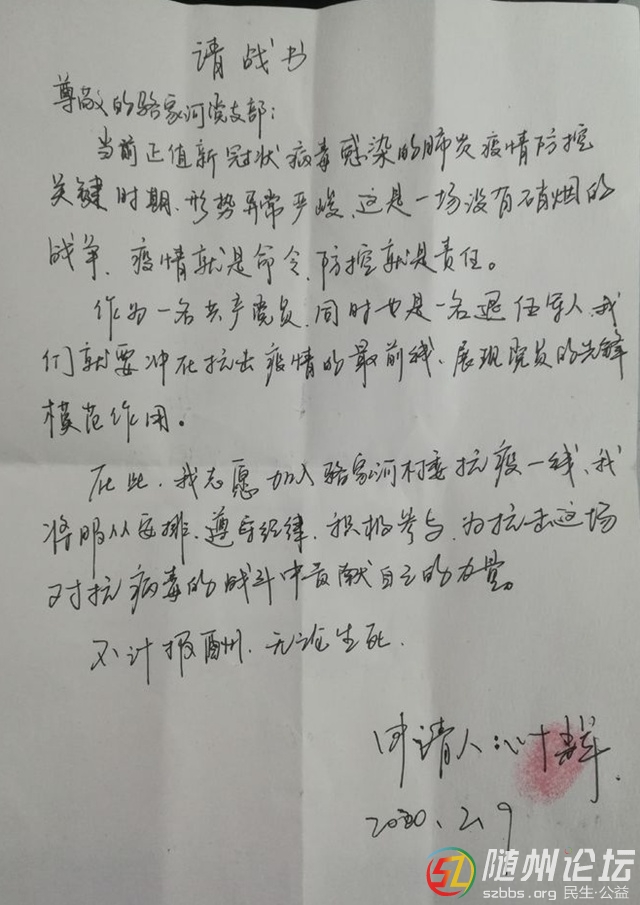 请战书
尊敬的骆家河党支部：
当前正值新冠状病毒感染的肺炎疫情防控
关键时期、形势异常严峻、这是一场没有硝烟的
战争、疫情就是命令、防控就是责任。
作为一名共产党员、同时也是一名退伍军人、我
们就要冲在抗击疫情的最前线、展现党员的先锋
模范作用。
在此、我志愿加入骆家河村委抗疫一线、我
将服从安排、遵守纪律、积极参与、为抗击这场
对抗病毒的战斗中贡献自己的力量。
不计报酬、无论生死.
申请人
2020.2.9
随州论坛
szbbs.org 民生·公益